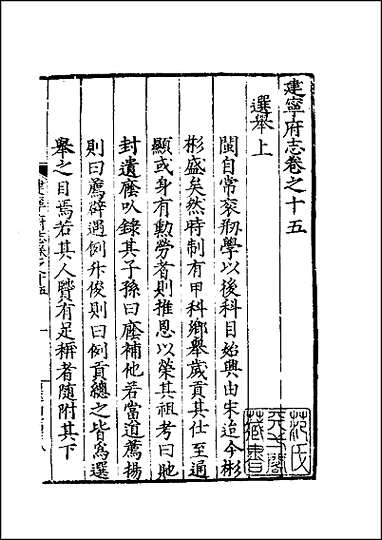 建寧府志卷之十五
選舉上
閩自常衮刱學以後科目始興由宋迨今彬
彬盛矣然時制有甲科鄉舉歲貢其仕至通
顯或身有勲勞者則推恩以榮其祖考曰貤
封遺廕以錄其子孫曰廕補他若當道薦揚
則曰薦辟遇例升俊則曰例貢總之皆為選
舉之目焉若其人賢有足稱者隨附其下
建寧府志卷之十五
一
范氏
天一閣
藏書